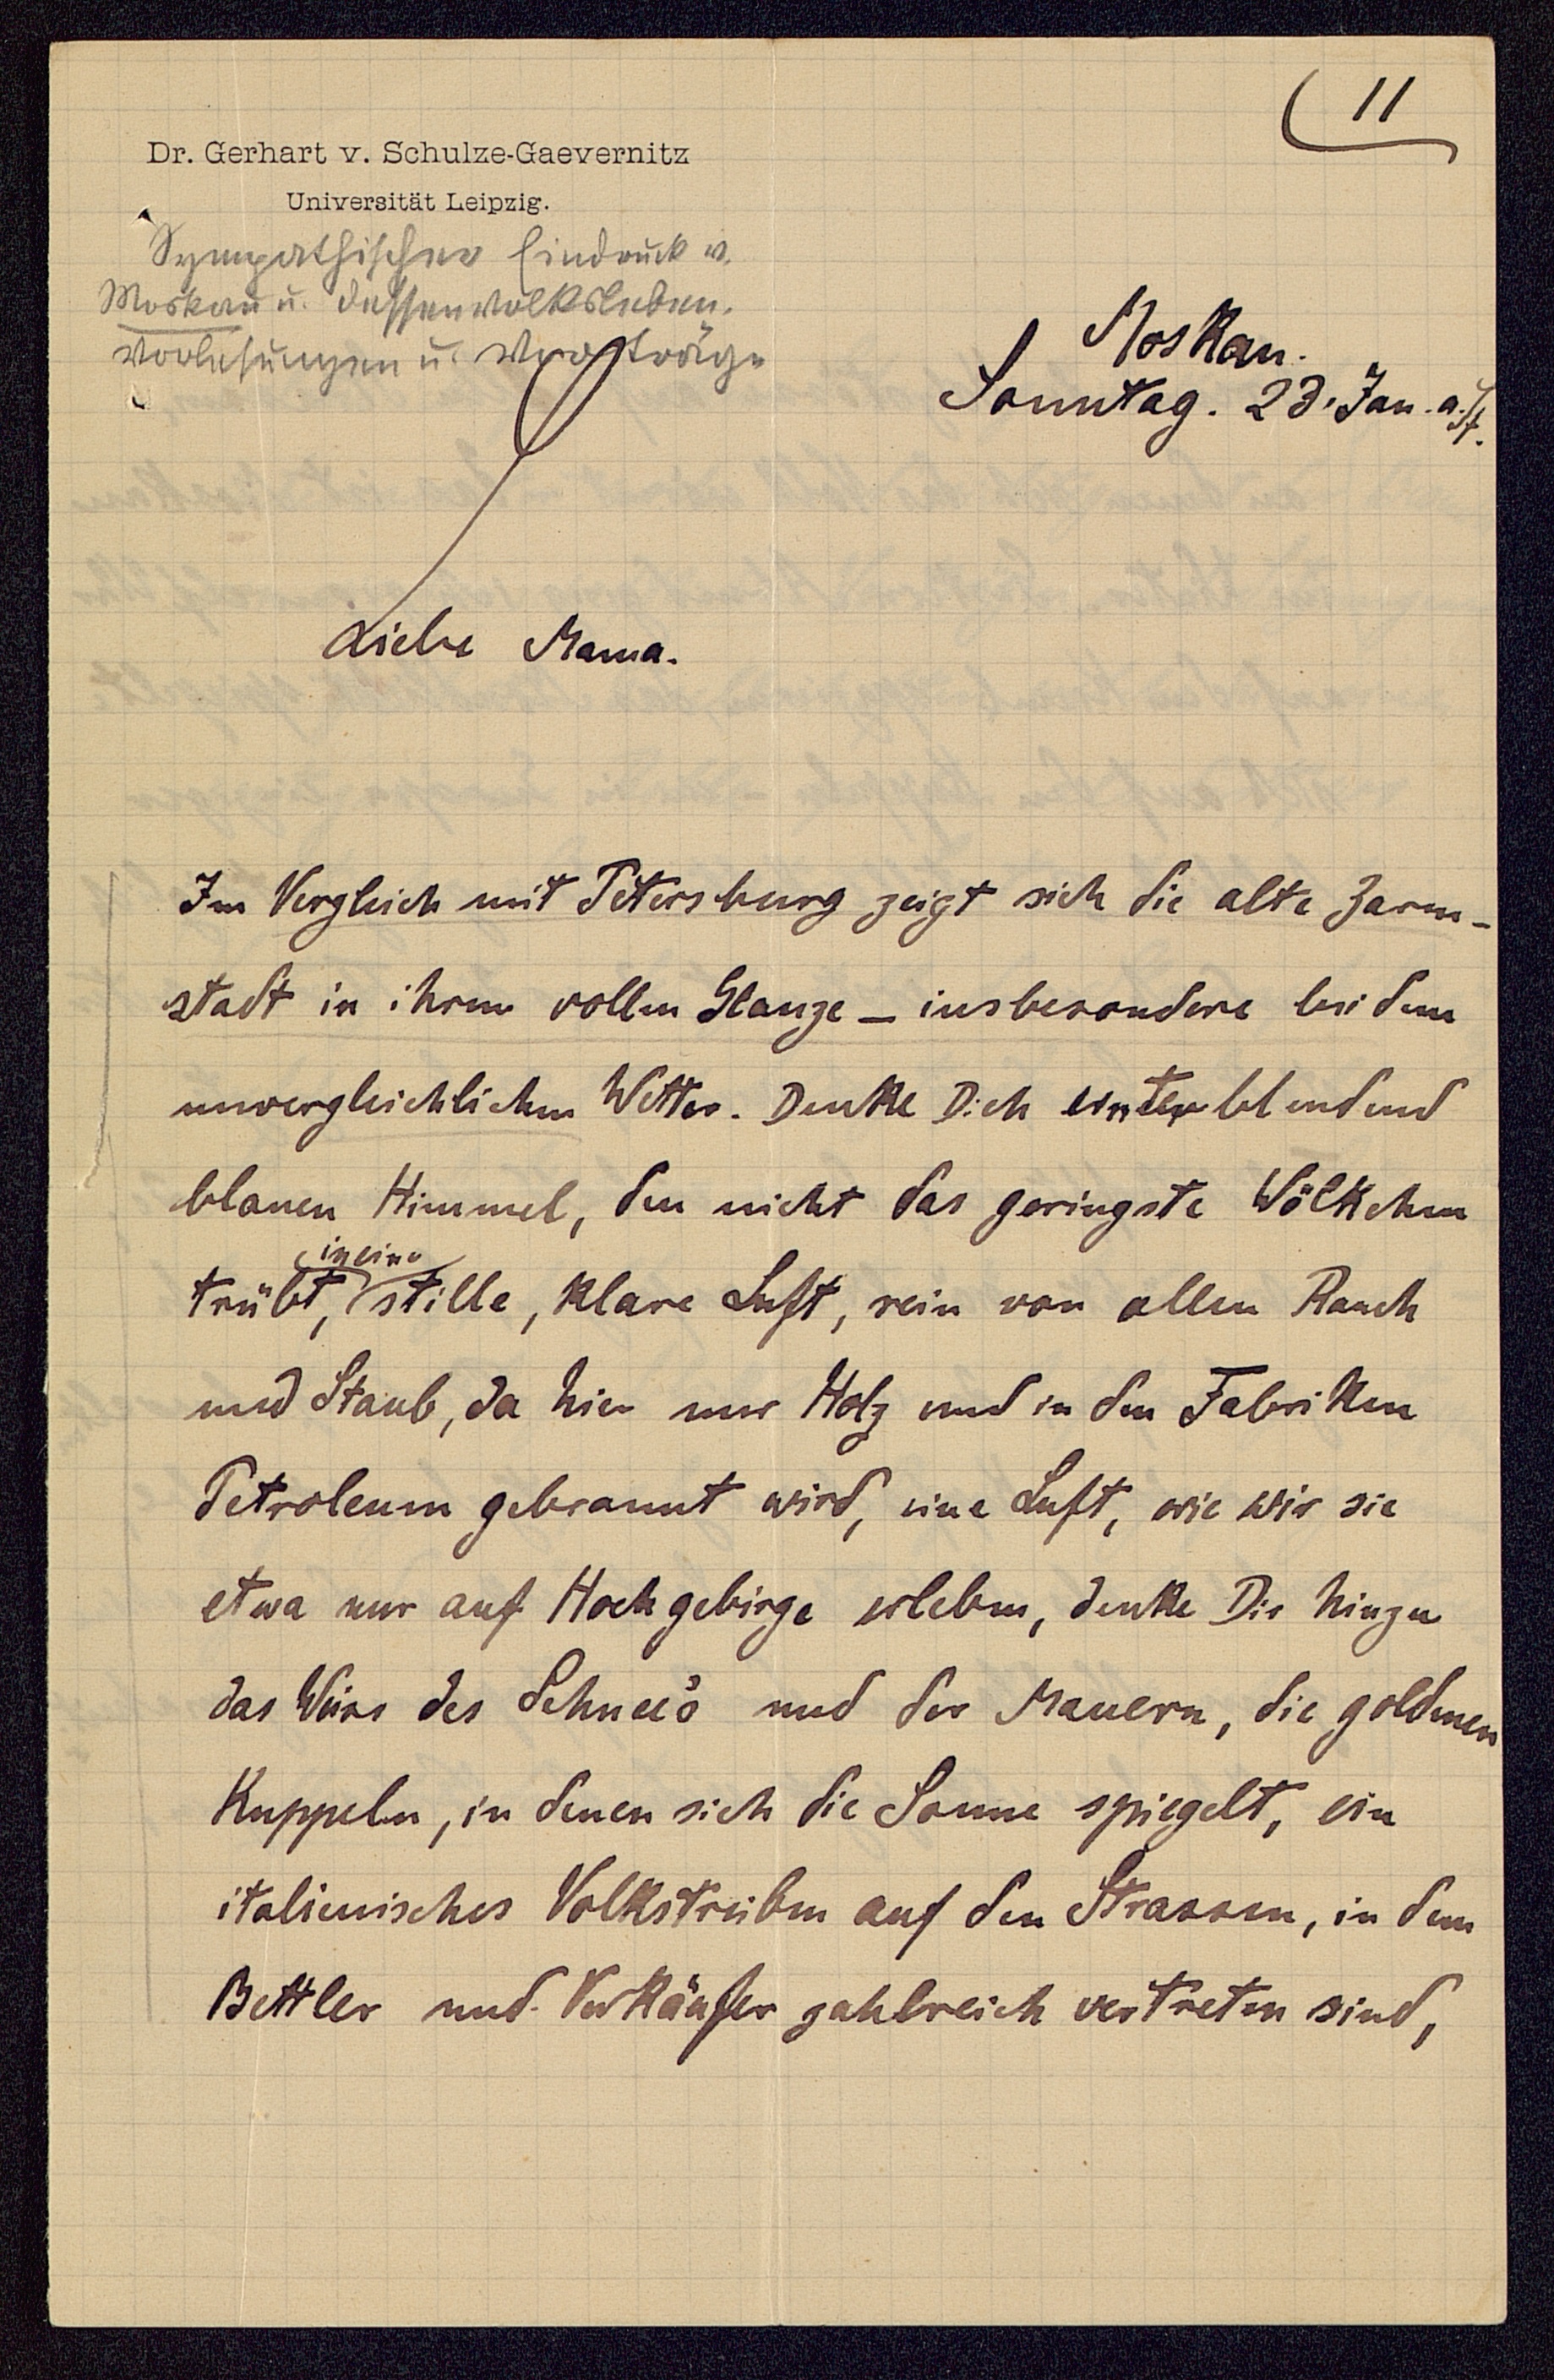 11
Dr. Gerhart v. Schulze-Gaevernitz
Universität Leipzig.
Sympathischer Eindruck v.
Moskau u. dessen Volksleben.
Vorlesungen u. Vorträge
Moskau.
Sonntag. 23. Jan. a. St.
Liebe Mama.
Im Vergleich mit Petersburg zeigt sich die alte Zaren-
stadt in ihrem vollen Glanze – insbesondere bei dem
unvergleichlichen Wetter. Denke Dich unter blendend
blauen Himmel, den nicht das geringste Wölkchen
in eine
trübt, stille, klare Luft, rein von allem Rauch
und Staub, da hier nur Holz und in den Fabriken
Petroleum gebrannt wird, eine Luft, wie wir sie
etwa nur auf Hochgebirge erleben, denke Dir hinzu
das Weiss des Schnee's und der Mauern, die goldenen
Kuppeln, in denen sich die Sonne spiegelt, ein
italienisches Volkstreiben auf den Strassen, in dem
Bettler und Verkäufer zahlreich vertreten sind,